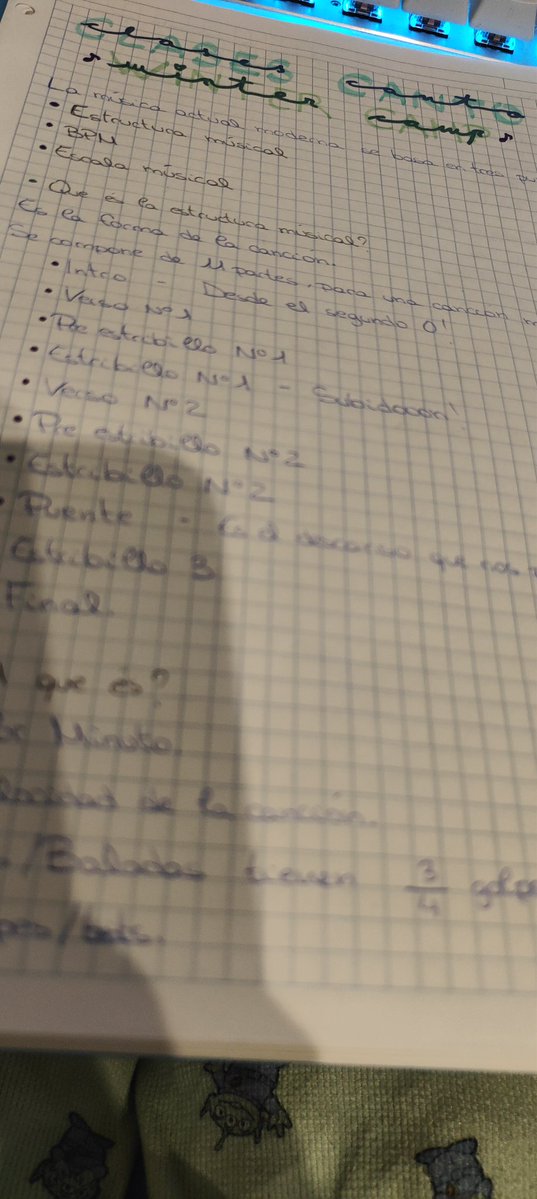 CLASES CANTO
♪ WINTER CAMP ♪
La música actual moderna se basa en tres
• Estructura músical
• BPM
• Escala músical
• Que és la estructura músical?
Es la forma de la canción.
Se compone de 11 partes, para una canción
• Intro - Desde el segundo 0!
• Verso Nº1
• Pre estribillo Nº1
• Estribillo Nº1 - Subidooon!
• Verso Nº2
• Pre estribillo Nº2
• Estribillo Nº2
• Puente - Es el descanso que nos
Estribillo 3
Final
que és?
Minuto.
de la canción.
/Baladas tienen 3/4
/bats.